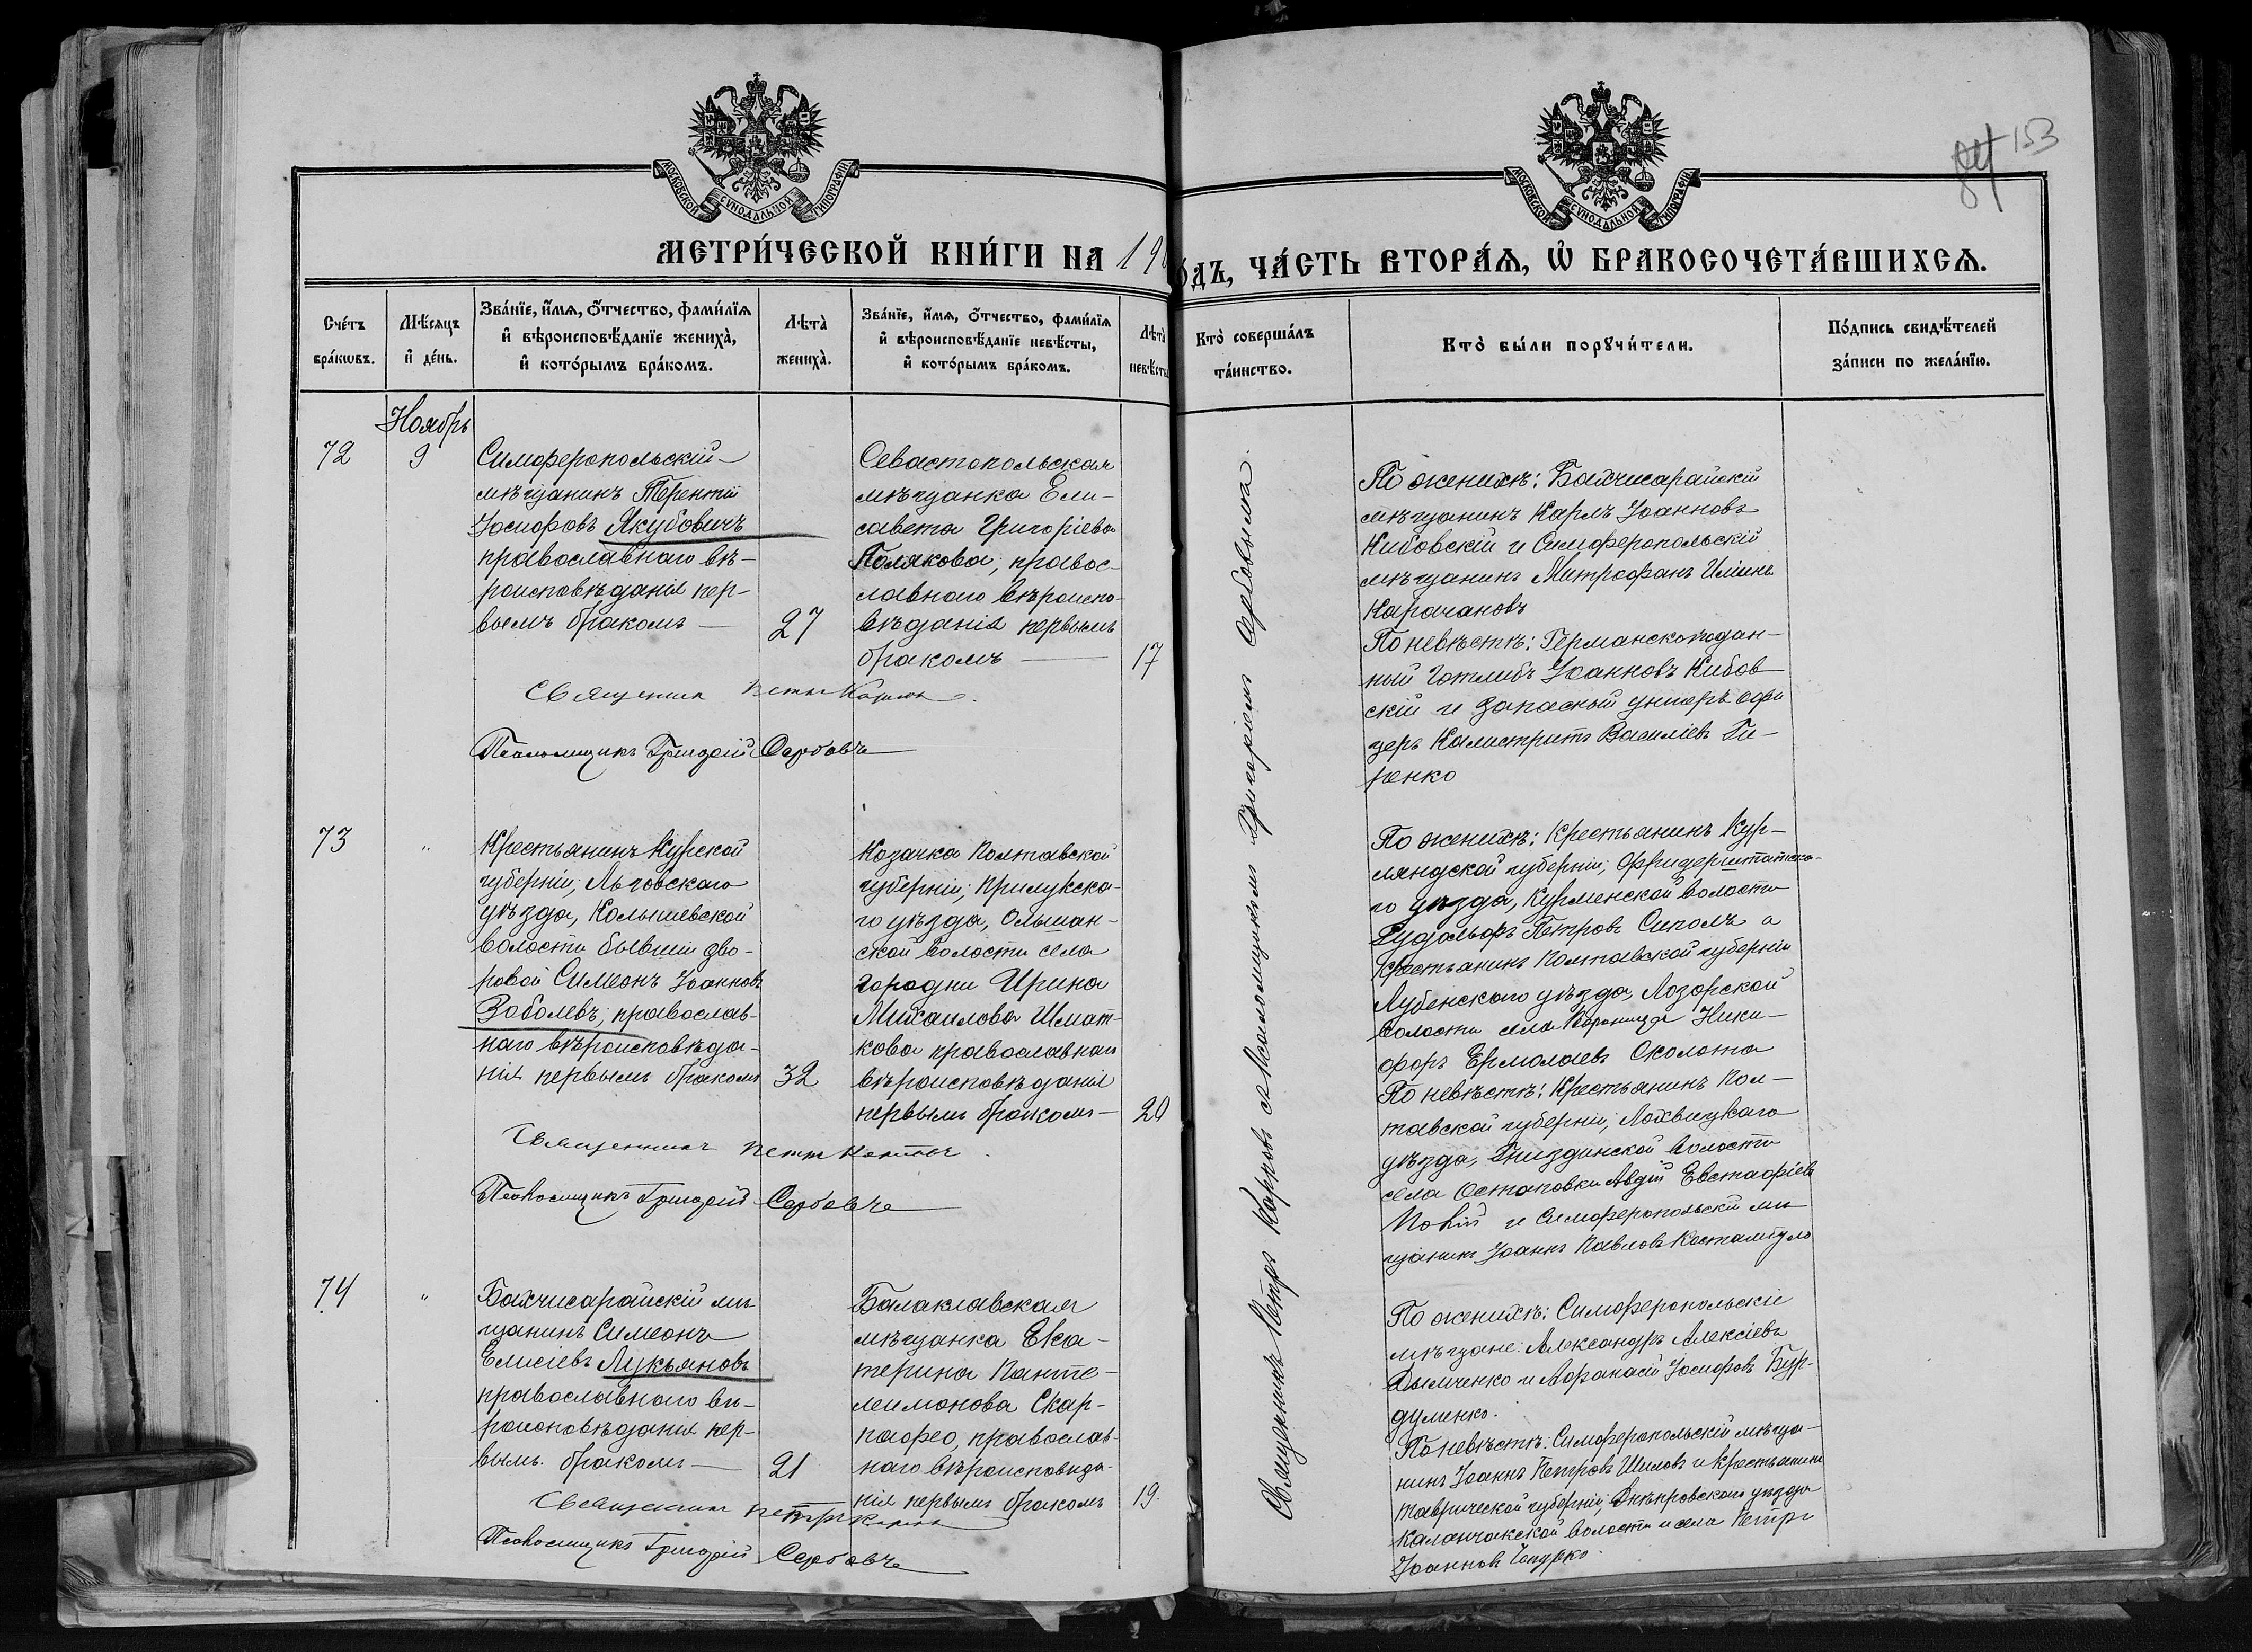 153
МОСКОВСКОЙ СѴНОДАЛЬНОЙ ТИПОГРАФІИ
МОСКОВСКОЙ СѴНОДАЛЬНОЙ ТИПОГРАФІИ
МЕТРИ́ЧЕСКОЙ КНИ́ГИ НА 190
ОДЪ, ЧА́СТЬ ВТОРА́Ѧ, Ѡ҆ БРАКОСОЧЕТА́ВШИХСѦ.
Сче́тъ бра́кѡвъ.
Мѣ́сяцъ и҆ де́нь.
Зва́нїе, и҆́мѧ, ѻ҆́тчество, фами́лїѧ
и҆ вѣроисповѣ́данїе жениха̀,
и҆ кото́рымъ бра́комъ.
Лѣта̀ жениха̀.
Зва́нїе, и҆́мѧ, ѻ҆́тчество, фами́лїѧ
и҆ вѣроисповѣ́данїе невѣ́сты,
и҆ кото́рымъ бра́комъ.
Лѣта̀ невѣ́сты
Кто̀ соверша́лъ та́инство.
Кто̀ бы́ли порꙋчи́тели.
По́дпись свидѣ́телей
за́писи по жела́нїю.
Ноябрь
72
9
Симферопольскій
мѣщанинъ Терентій
Іосифовъ Якубовичъ
православнаго вѣ-
роисповѣданія пер-
вымъ бракомъ —
27
Севастопольская
мѣщанка Ели-
савета Григоріева
Полякова, правос-
лавнаго вѣроиспо-
вѣданія первымъ
бракомъ —
17
Священник Петръ Карпов
Псаломщикъ Григорій Сербовъ
По женихѣ: Бахчисарайскій
мѣщанинъ Карлъ Іоанновъ
Кибовскій и Симферопольскій
мѣщанинъ Митрофанъ Иліинъ
Карачановъ
По невѣстѣ: Германскоподан-
ный Готлибъ Іоанновъ Кибов
скій и запасный унтеръ офи
церъ Калистратъ Василіевъ Ги-
ренко
73
"
Крестьянинъ Курской
губерніи, Льговскаго
уѣзда, Колышевской
волости бывшій дво-
ровой Симеонъ Іоанновъ
Зоболевъ, православ-
наго вѣроисповѣда-
нія первымъ бракомъ
32
Козачка Полтавской
губерніи, Прилукска-
го уѣзда, Ольшан-
ской волости села
Городни Ирина
Михаилова Шмат-
кова православнаго
вѣроисповѣданія
первымъ бракомъ —
20
Священникъ Петръ Карпов
Псаломщикъ Григорій Сербовъ
По женихѣ: Крестьянинъ Кур-
ляндской губерніи, Фридерштатска-
го уѣзда, Курменской волости
Рудольфъ Петровъ Сиполъ а
крестьянинъ Полтавской губерніи
Лубенскаго уѣзда, Лозорской
волости села Ники-
форъ Ермолаевъ Сколота
По невѣстѣ: Крестьянинъ Пол-
тавской губерніи, Лохвицкаго
уѣзда, волости
села Остаповки Авдій Евстафіевъ
и Симферопольскій мѣ
щанинъ Іоаннъ Павловъ
74
"
Бахчисарайскій мѣ
щанинъ Симеонъ
Елисіевъ Лукьяновъ
православнаго вѣ-
роисповѣданія пер-
вымъ бракомъ —
21
Балаклавская
мѣщанка Ека-
терина Панте-
леимонова Скар-
пафео, православ-
наго вѣроисповѣда-
нія первымъ бракомъ
19.
Священник Петръ Карпов
Псаломщикъ Григорій Сербовъ
По женихѣ: Симферопольскіе
мѣщане: Александръ Алексіевъ
Дымченко и Афанасій Іосифовъ Бур-
думенко.
По невѣстѣ: Симферопольскій мѣща-
нинъ Іоаннъ Петровъ Шиловъ и крестьянинъ
Таврической губерніи, Днѣпровскаго уѣзда
Каланчакской волости и села Петръ
Іоанновъ
Священникъ Петръ Карповъ съ Псаломщикомъ Григоріемъ Сербовымъ.